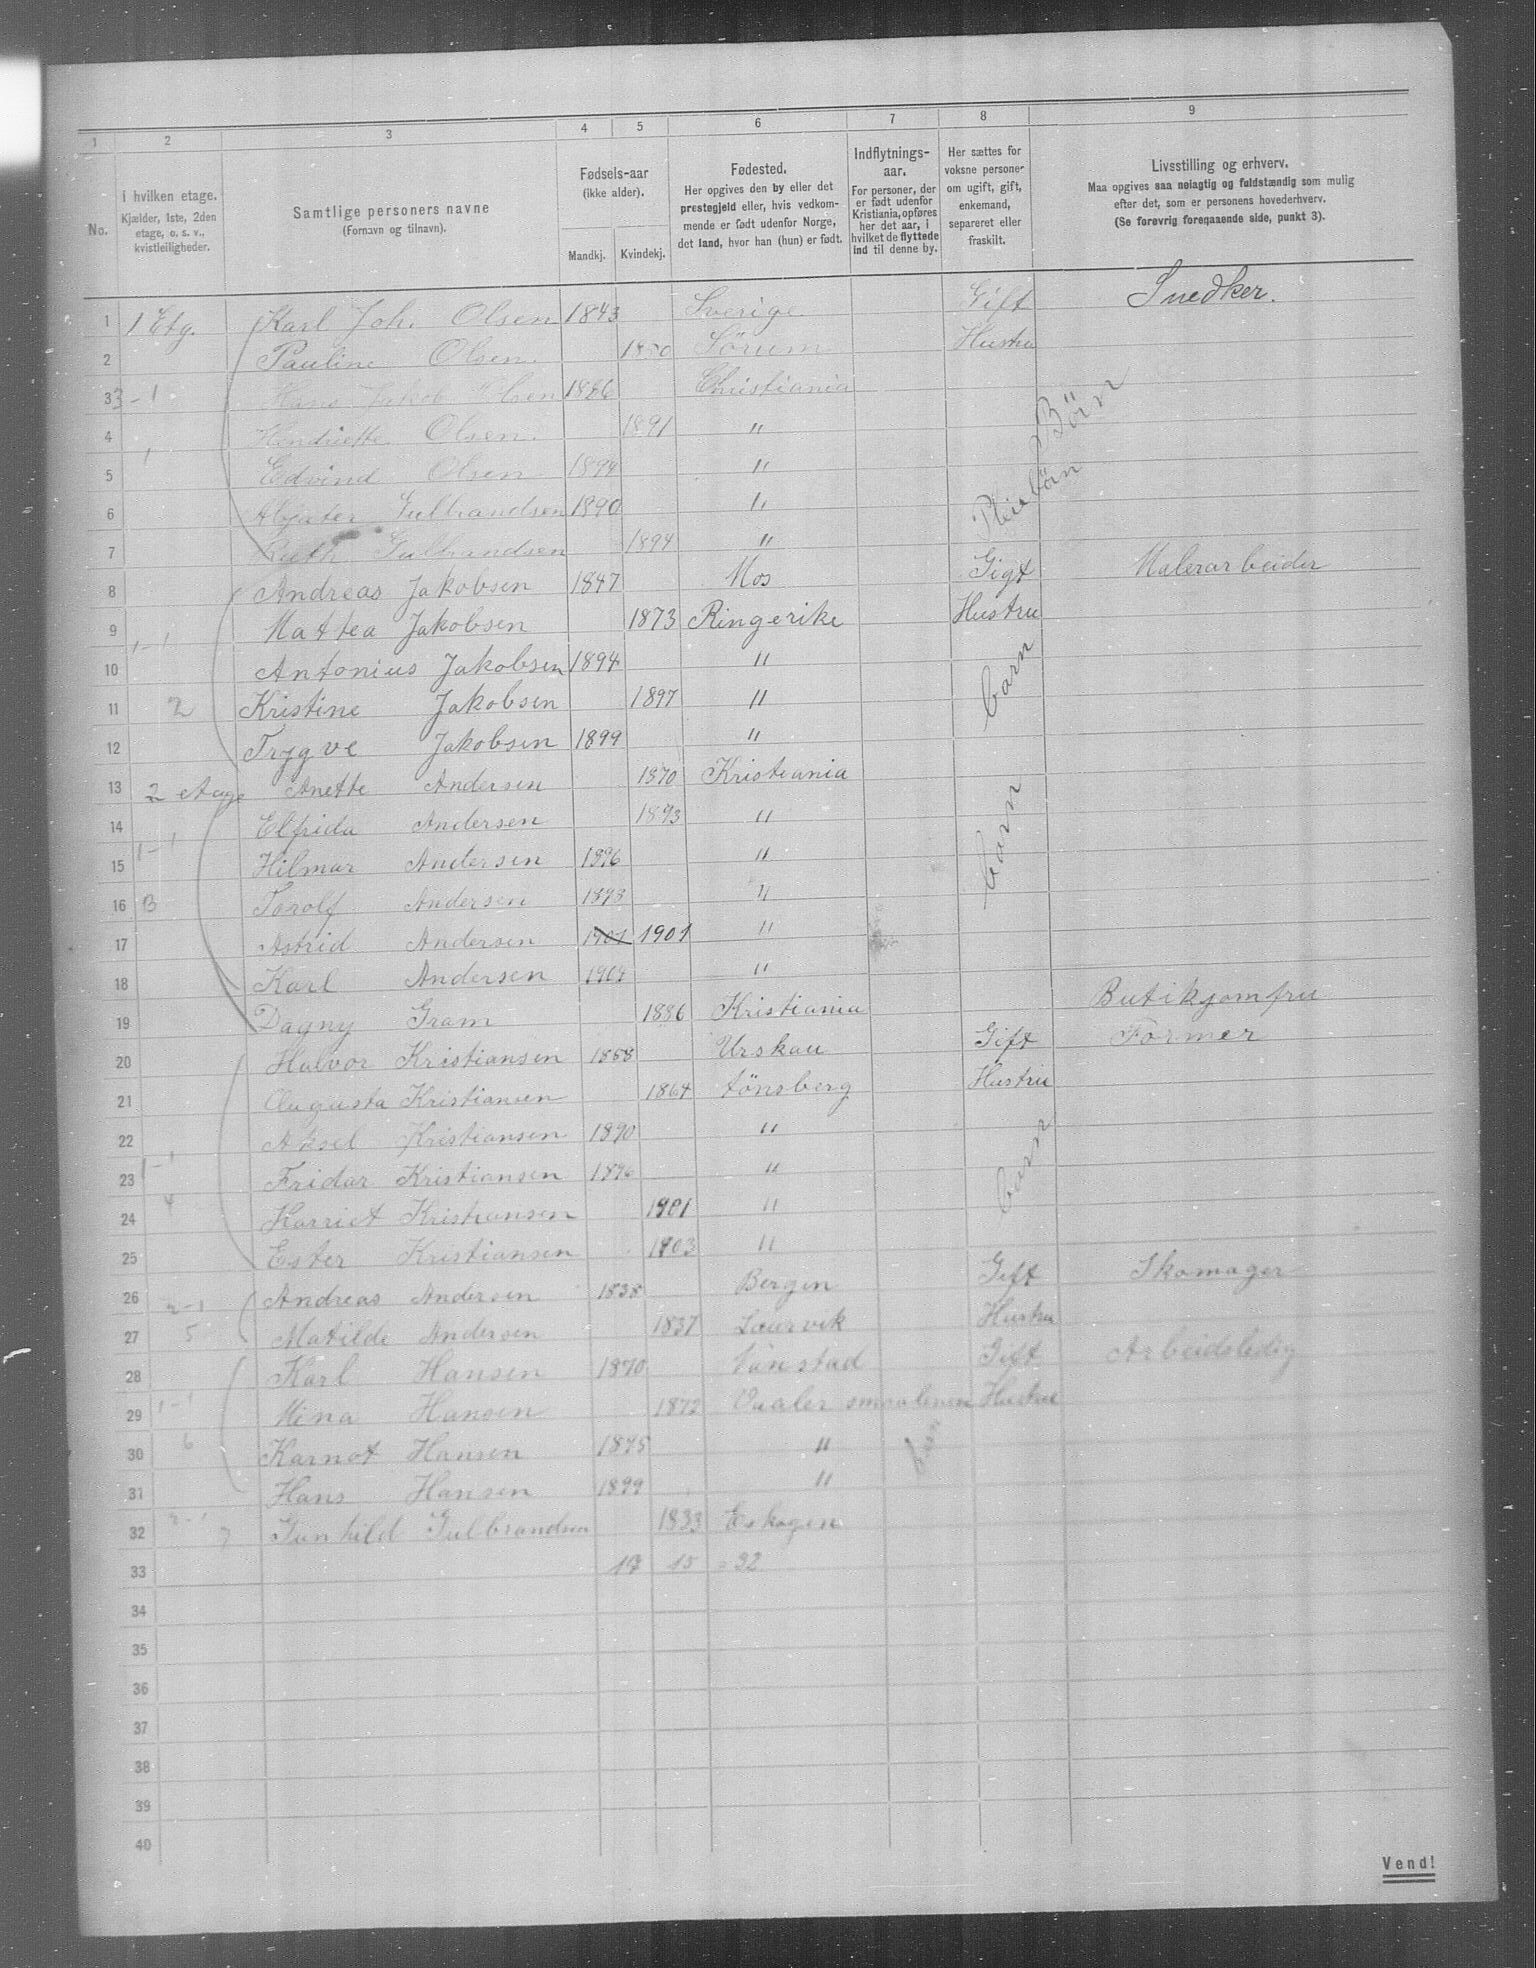 1 2 3 4 5 6 7 8 9
No.
I hvilken etage.
Kjælder, 1ste, 2den
etage, o. s. v.,
kvistleiligheder.
Samtlige personers navne
(Fornavn og tilnavn).
Fødsels-aar
(ikke alder).
Mandkj. Kvindekj.
Fødested.
Her opgives den by eller det
prestegjeld eller, hvis vedkom-
mende er født udenfor Norge,
det land, hvor han (hun) er født.
Indflytnings-
aar.
For personer, der
er født udenfor
Kristiania, opføres
her det aar, i
hvilket de flyttede
ind til denne by.
Her sættes for
voksne personer
om ugift, gift,
enkemand,
separeret eller
fraskilt.
Livsstilling og erhverv.
Maa opgives saa nøiagtig og fuldstændig som mulig
efter det, som er personens hovederhverv.
(Se forøvrig foregaaende side, punkt 3).
1 1 Etg. Karl Joh. Olsen 1843 Sverige Gift Snedker.
2 Pauline Olsen 1850 Sørum Hustru
3 3-1 Hans Jakob Olsen 1886 Christiania Børn
4 Hendriette Olsen. 1891 "
5 Edvind Olsen 1894 "
6 Gulbrandsen 1890 " Pleiebørn
7 Ruth Gulbrandsen 1894 "
8 Andreas Jakobsen 1847 Mos Gigt Malerarbeider
9 1-1 Mattea Jakobsen 1873 Ringerike Hustru
10 Antonius Jakobsen 1894 " barn
11 2 Kristine Jakobsen 1897 "
12 Trygve Jakobsen 1899 "
13 2 etage Anette Andersen 1870 Kristiania
14 Elfrida Andersen 1893 " barn
15 1-1 Hilmar Andersen 1896 "
16 3 Torolf Andersen 1898 "
17 Astrid Andersen 1901 1901 "
18 Karl Andersen 1904 "
19 Dagny Gram 1886 Kristiania Butikjomfru
20 Halvor Kristiansen 1858 Urskau Gift Former
21 Augusta Kristiansen 1864 tönsberg Hustru
22 Aksel Kristiansen 1890 " barn
23 1-1 Fridar Kristiansen 1896 "
24 4 Harriet Kristiansen 1901 "
25 Ester Kristiansen 1903 "
26 2-1 Andreas Andersen 1838 Bergen Gift Skomager
27 5 Matilde Andersen 1837 Laurvik Hustru
28 Karl Hansen 1870 Vänstad Gift Arbeidsledig
29 1-1 Mina Hansen 1872 Vaaler smaalenen Hustru
30 6 Karnot Hansen 1895 "
31 Hans Hansen 1899 "
32 2-1 7 Gunhild Gulbrandsen 1833 Eskogen
33 17 15 = 32
34
35
36
37
38
39
40
Vend!